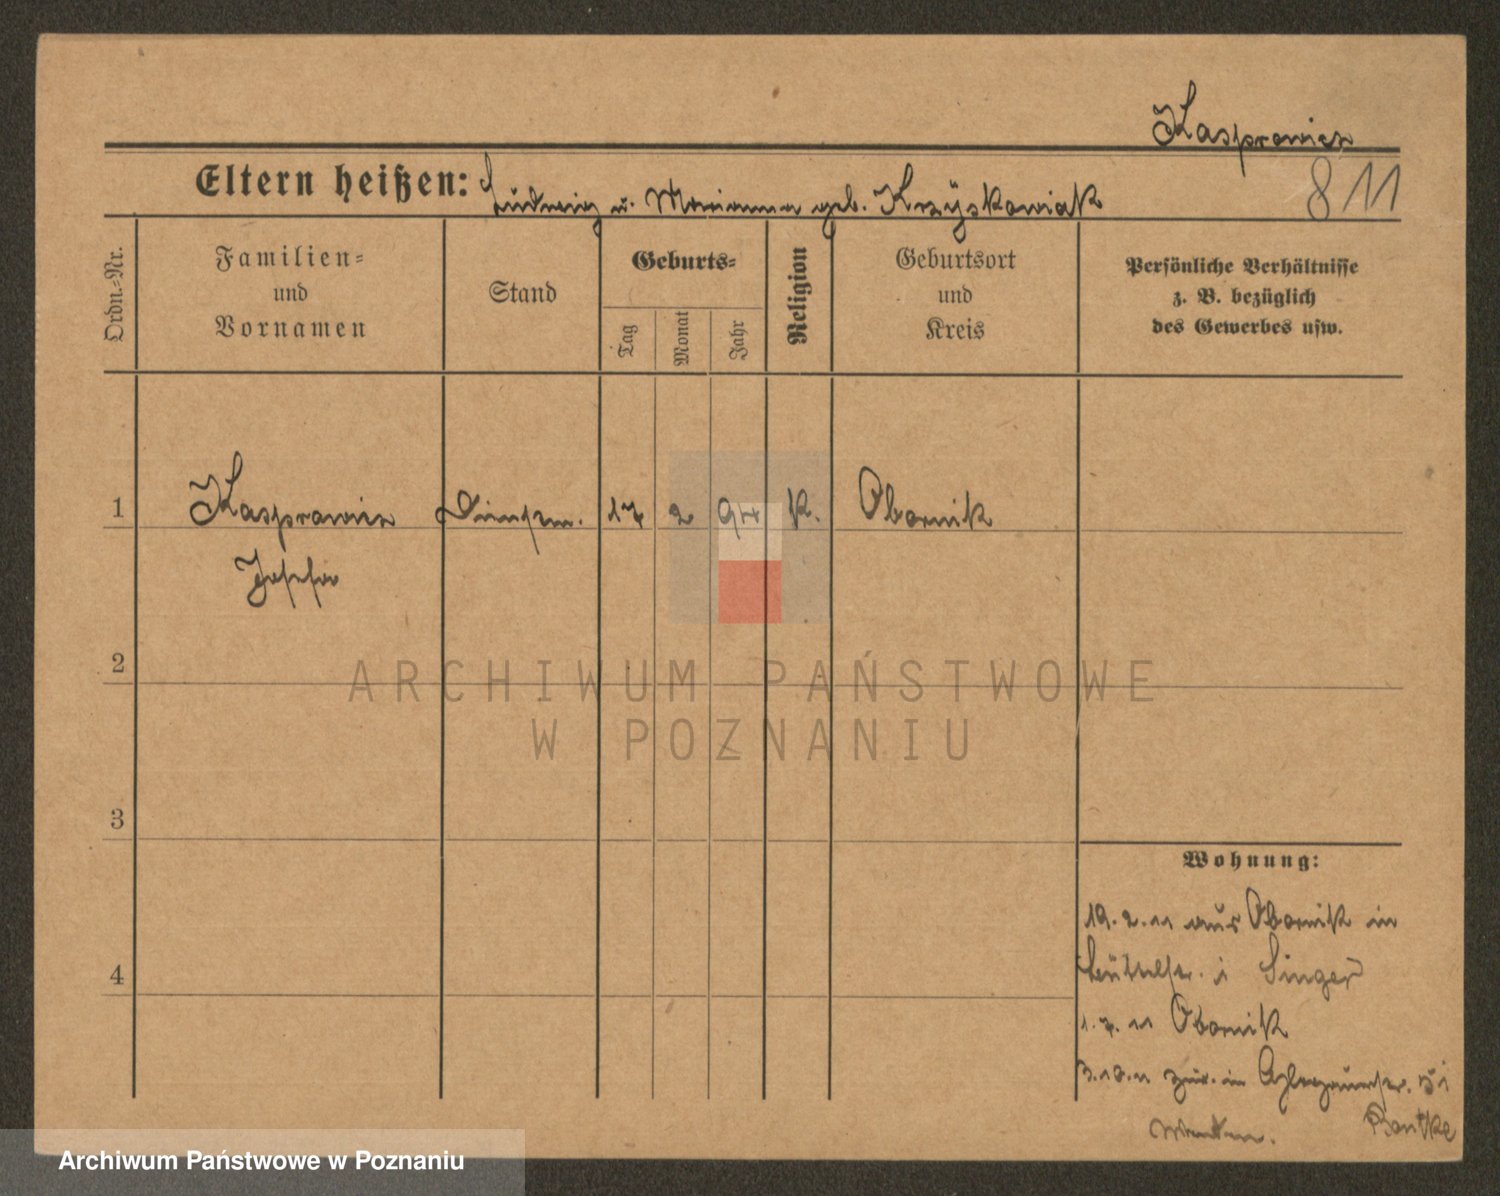 Kasprowicz
811
Eltern heißen: Ludwig u. Marianna geb. Krzyśkowiak
Ordn.-Nr.
Familien-
und
Vornamen
Stand
Geburts-
Tag
Monat
Jahr
Religion
Geburtsort
und
Kreis
Persönliche Verhältnisse
z. B. bezüglich
des Gewerbes usw.
1 Kasprowicz 17 2 94 K. Obornik
Josefa
2
3
4
ARCHIWUM PAŃSTWOWE
W POZNANIU
Wohnung:
19.2.11 aus Obornik in
Singer
1.7.11 Obornik
3.10.11 zur. in
Bantke
Archiwum Państwowe w Poznaniu